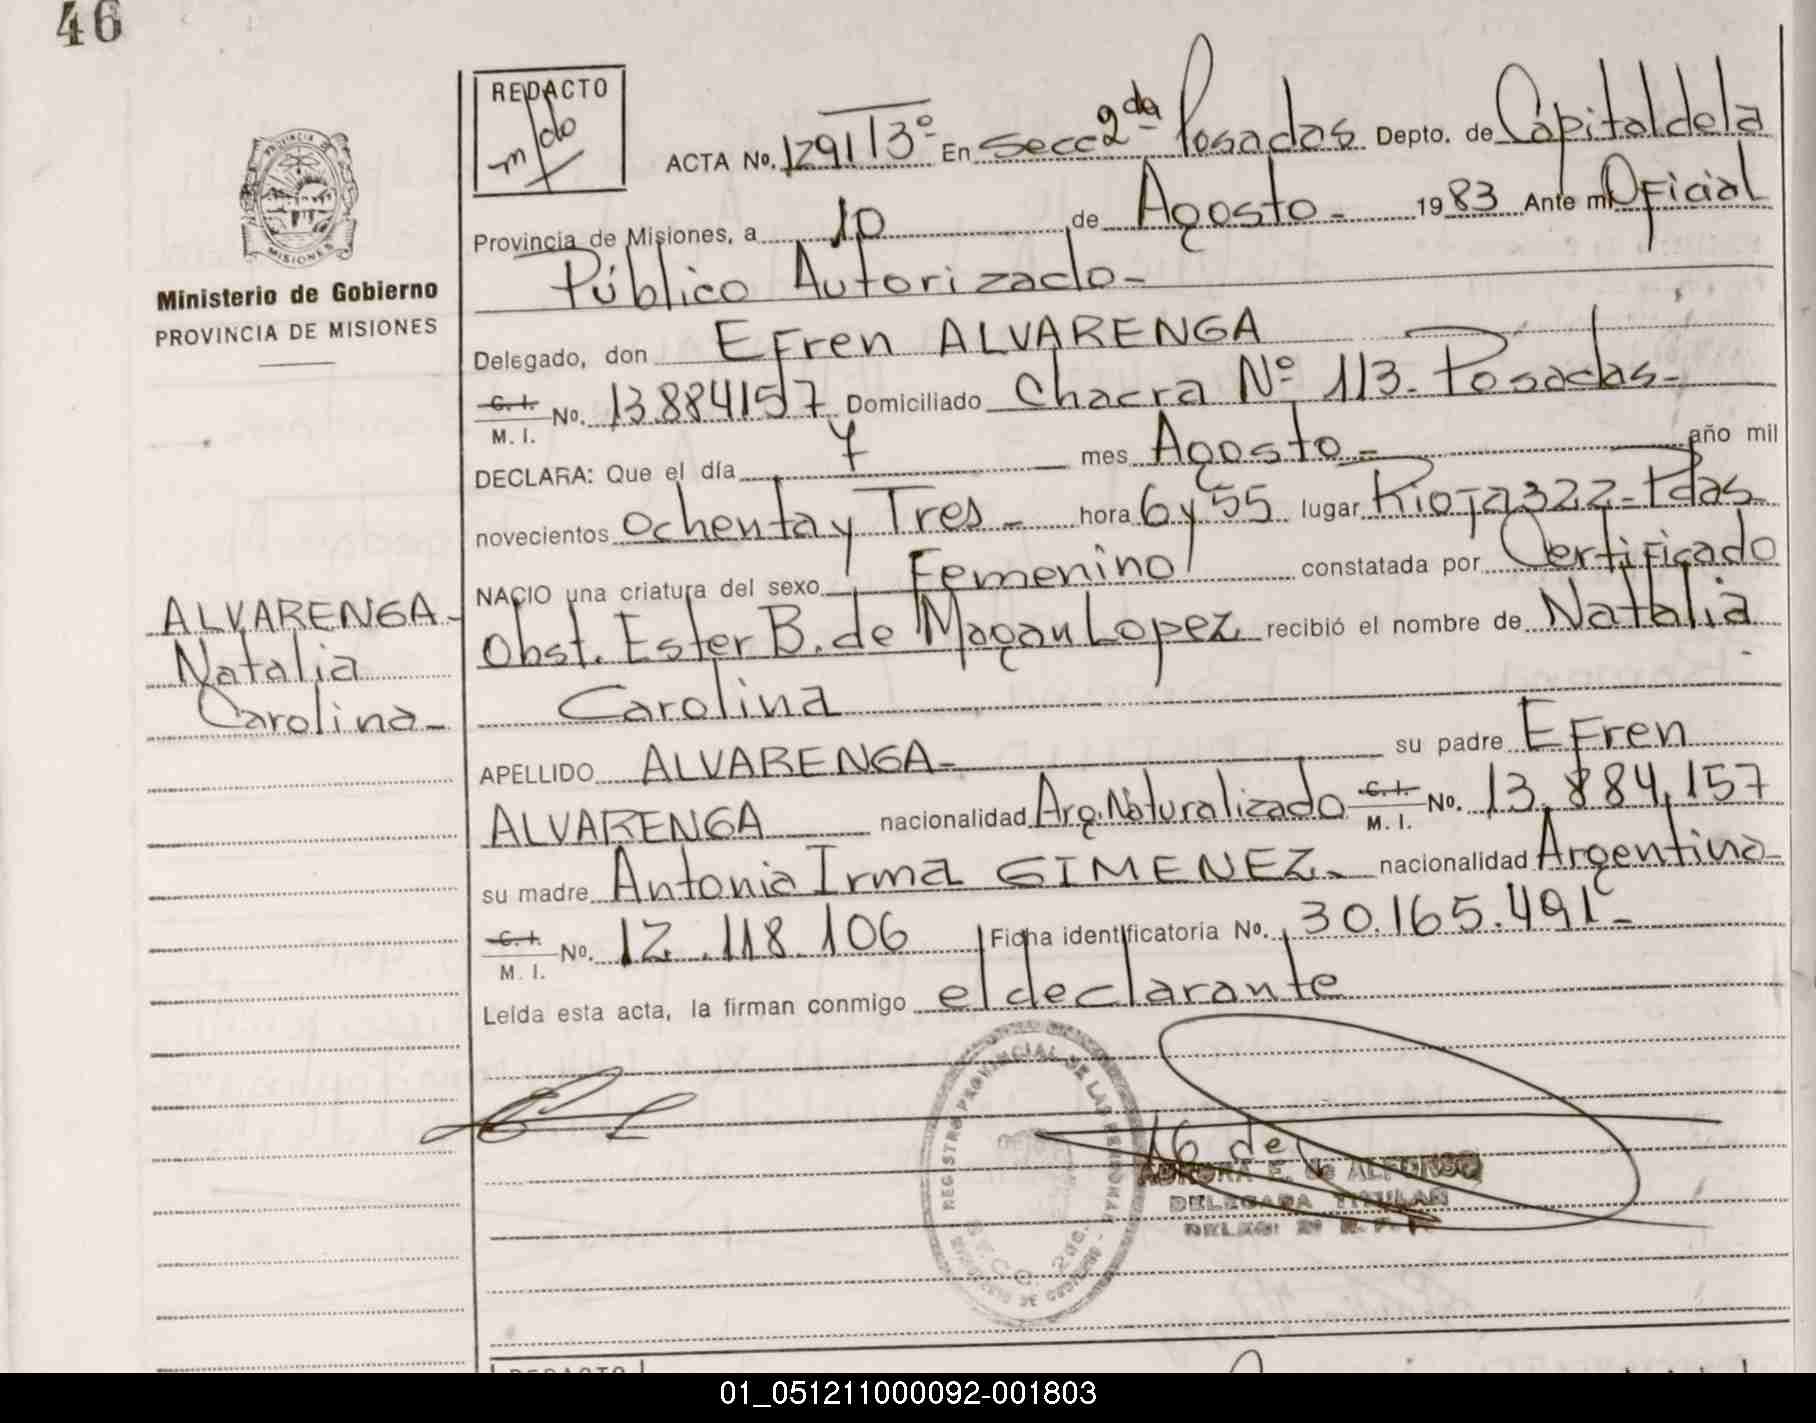 46
REDACTO
ACTA No. 1291 T3º En Secc 2da Posadas Depto. de Capital de la
Provincia de Misiones, a 10 de Agosto - 1983 Ante mi Oficial
Público Autorizado -
PROVINCIA
MISIONES
Ministerio de Gobierno
PROVINCIA DE MISIONES
Delegado, don EFren ALVARENGA
C. I.
M. I. No. 13.884157 Domiciliado Chacra Nº 113 - Posadas -
DECLARA: Que el día 7 mes Agosto - año mil
novecientos ochenta y Tres - hora 6 y 55 lugar Rioja 322 - Pdas
NACIO una criatura del sexo Femenino constatada por Certificado
ALVARENGA -
Natalia
Carolina -
Obst. Ester B. de Magan Lopez recibió el nombre de Natalia
Carolina
APELLIDO ALVARENGA - su padre EFren
ALVARENGA nacionalidad Arg. Naturalizado C. I.
M. I. No. 13.884.157
su madre Antonia Irma GIMENEZ - nacionalidad Argentina -
C. I.
M. I. No. 12.118.106 Ficha identificatoria No. 30.165.491 -
Leída esta acta, la firman conmigo el declarante
REGISTRO PROVINCIAL DE LAS PERSONAS
SECC. 2da.
MINISTERIO DE GOBIERNO
E. de ALFONSO
DELEGADA TITULAR
REDACTO
01_051211000092-001803